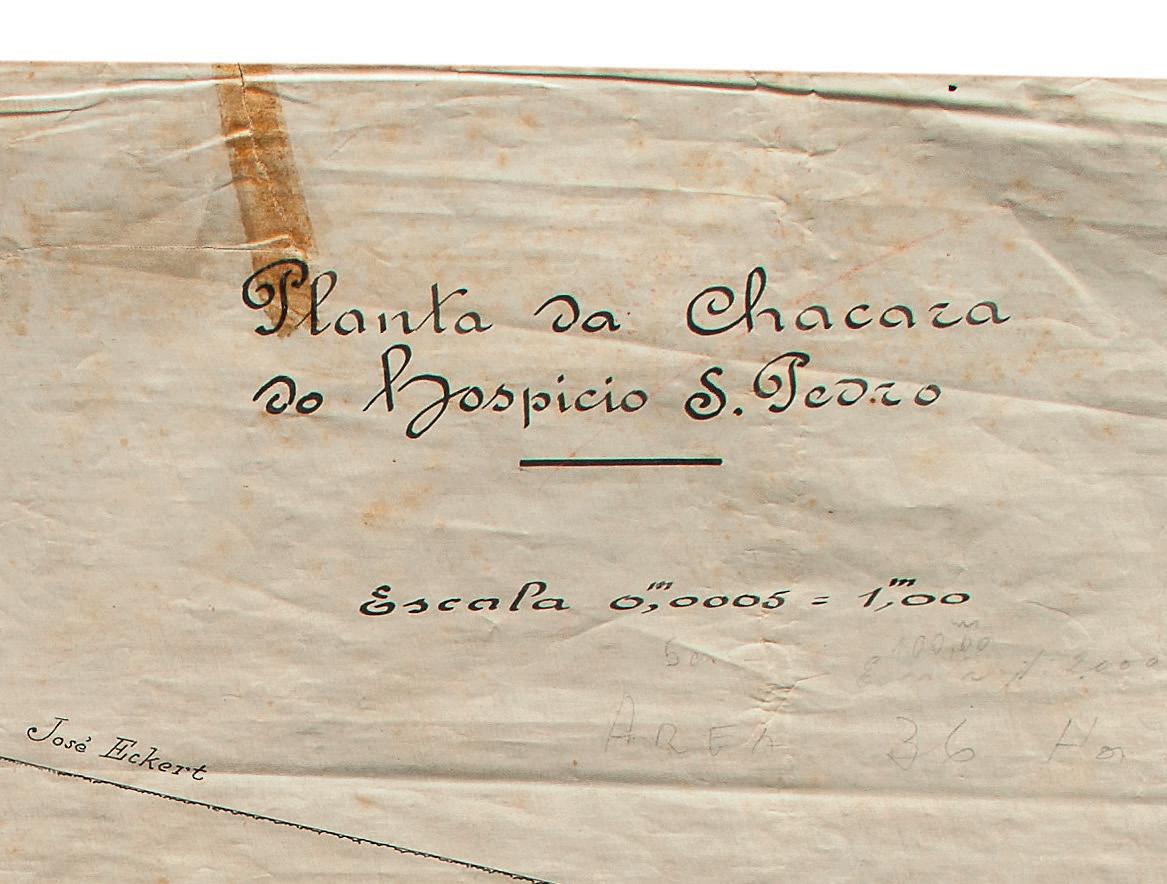 Planta da Chacara
do Hospicio S. Pedro
Escala 0,ᵐ0005 = 1,ᵐ00
100,00
AREA 36 Ha
José Eckert